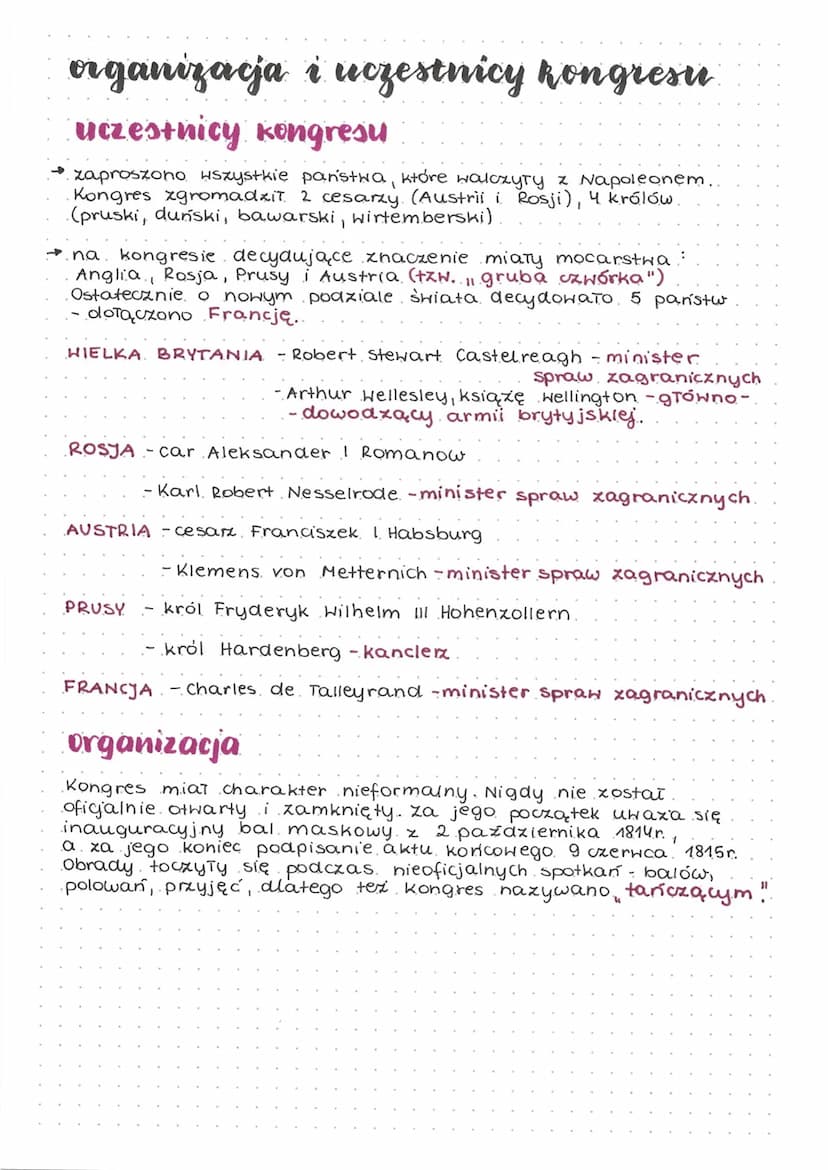 organizacja i uczestnicy kongresu
uczestnicy kongresu
→ zaproszono wszystkie państwa, które walczyły z Napoleonem.
Kongres zgromadził 2 cesarzy (Austrii i Rosji), 4 królów
(pruski, duński, bawarski, wirtemberski)
→ na kongresie decydujące znaczenie miały mocarstwa:
Anglia, Rosja, Prusy i Austria (tzw. „gruba czwórka")
Ostatecznie o nowym podziale świata decydowało 5 państw
- dołączono Francję.
WIELKA BRYTANIA - Robert Stewart Castelreagh - minister
spraw zagranicznych
- Arthur Wellesley, książę Wellington - główno-
- dowodzący armii brytyjskiej.
ROSJA - car Aleksander I Romanow
- Karl Robert Nesselrode - minister spraw zagranicznych
AUSTRIA - cesarz Franciszek I Habsburg
- Klemens von Metternich - minister spraw zagranicznych
PRUSY - król Fryderyk Wilhelm III Hohenzollern
- król Hardenberg - kanclerz
FRANCJA - Charles de Talleyrand - minister spraw zagranicznych
organizacja
Kongres miał charakter nieformalny. Nigdy nie został
oficjalnie otwarty i zamknięty. Za jego początek uważa się
inauguracyjny bal maskowy z 2 października 1814r.,
a za jego koniec podpisanie aktu końcowego 9 czerwca 1815r.
Obrady toczyły się podczas nieoficjalnych spotkań - balów,
polowań, przyjęć, dlatego też kongres nazywano „tańczącym".